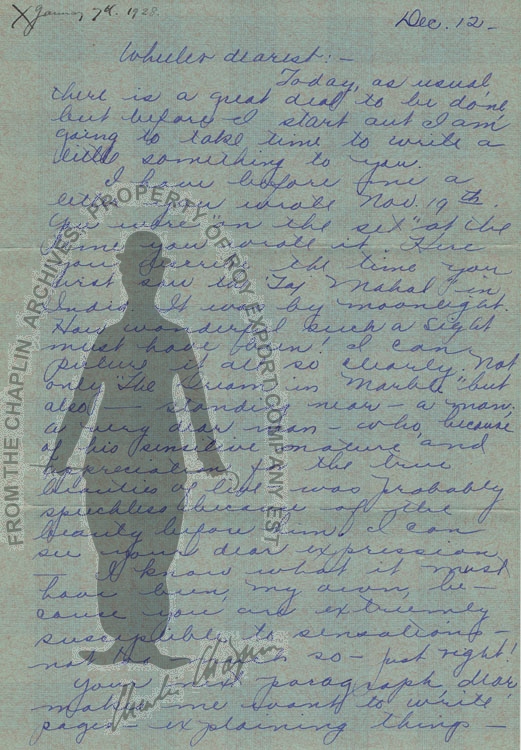 X January 7th. 1928.
Dec. 12 -
Wheeler dearest: -
Today, as usual,
there is a great deal to be done,
but before I start out I am
going to take time to write a
little something to you.
I have before me a
letter you wrote Nov. 19th.
You were "on the set" at the
time you wrote it. Here
you describe the time you
first saw the Taj Mahal in
India. It was by moonlight.
How wonderful such a sight
must have been! I can
picture it all so clearly. Not
only "The Dream in Marble" but
also - standing near - a man,
a very dear man - who, because
of his sensitive nature and
appreciation for the true
beauties of life was probably
speechless because of the
beauty before him. I can
see your dear expression
- I know what it must
have been, my own, be-
cause you are extremely
susceptible to sensations -
not too - so - just right!
Your next paragraph, dear,
makes me want to write
pages - explaining things -
FROM THE CHAPLIN ARCHIVES. PROPERTY OF ROY EXPORT COMPANY EST.
Charlie Chaplin